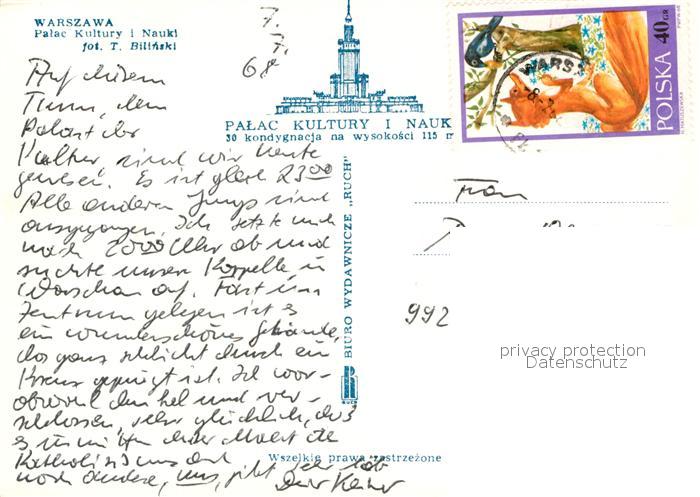 WARSZAWA
Pałac Kultury i Nauki
fot. T. Biliński
7.
7.
68
PAŁAC KULTURY I NAUK
30 kondygnacja na wysokości 115 m
POLSKA 40 GR
WARS
Auf diesem
Turm, dem
Palast der
Kultur sind wir heute
gewesen. Es ist gleich 23 00
Alle anderen Jungs sind
ausgegangen. Ich setzte mich
nach 20 00 Uhr ab und
suchte unsere Kappelle in
Warschau auf. Fast im
Zentrum gelegen ist es
ein wunderschönes Gebäude,
das ganz schlicht durch ein
Kreuz geprägt ist. Ich war
obwohl dunkel und ver-
schlossen, sehr glücklich, daß
es inmitten einer Macht die
Katholizismus und
noch andere, uns, gibt. Sehr lieb
Dein
BIURO WYDAWNICZE „RUCH"
RUCH
Frau
992
privacy protection
Datenschutz
Wszelkie prawa zastrzeżone